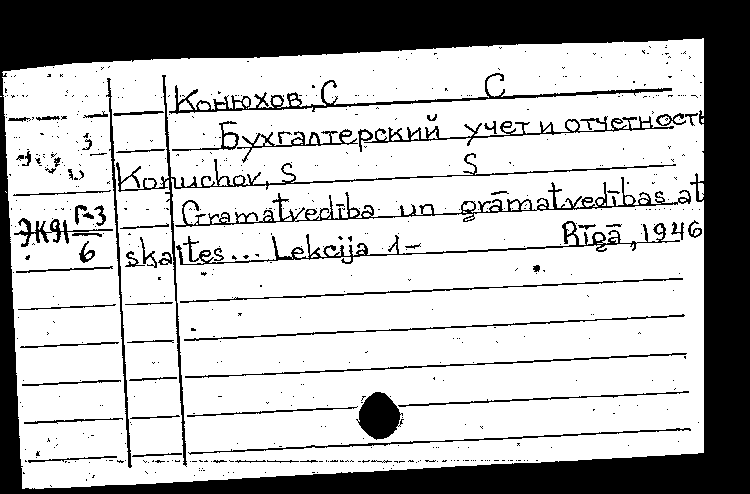 Конюхов, С С
Бухгалтерский учет и отчетность
Konuchov, S S
Gramatvedība un grāmatvedības at
skaites... Lekcija 1-
Rīgā, 1946
ЭК91 Г-3
6